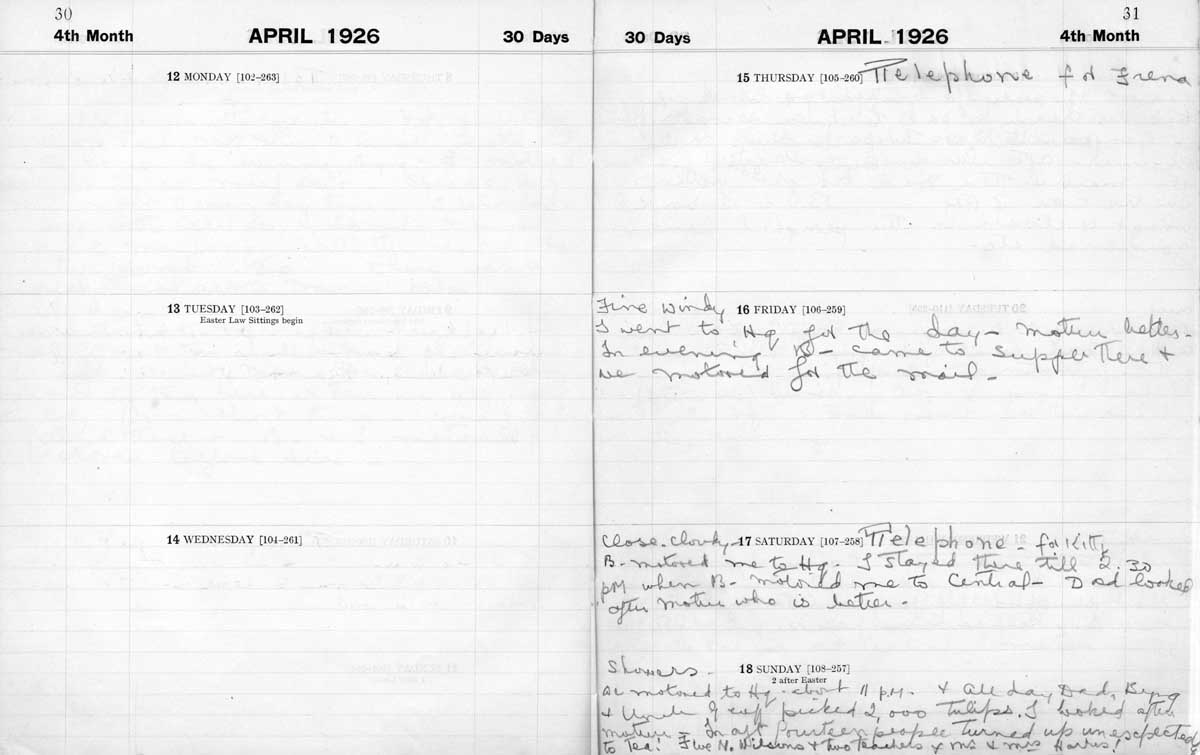 30
4th Month APRIL 1926 30 Days
12 MONDAY [102-263]
13 TUESDAY [103-262]
Easter Law Sittings begin
14 WEDNESDAY [104-261]
31
30 Days APRIL 1926 4th Month
15 THURSDAY [105-260] Telephone for Irena
Fine Windy 16 FRIDAY [106-259]
I went to Hq for the day - mother better -
In evening B - came to supper there +
we motored for the mail -
Close. Cloudy - 17 SATURDAY [107-258] Telephone - for Kitty
B - motored me to Hq - I stayed there till 2.30
PM when B - motored me to Central - Dad looked
after mother who is better -
Showers - 18 SUNDAY [108-257]
2 after Easter
motored to Hq - about 11 p.m. + all day Dad, Byng
+ Uncle picked 2,000 tulips. I looked after
mother - In aft fourteen people turned up unexpected
to Tea! Five N. Wilsons + two teachers + Mr + Mrs